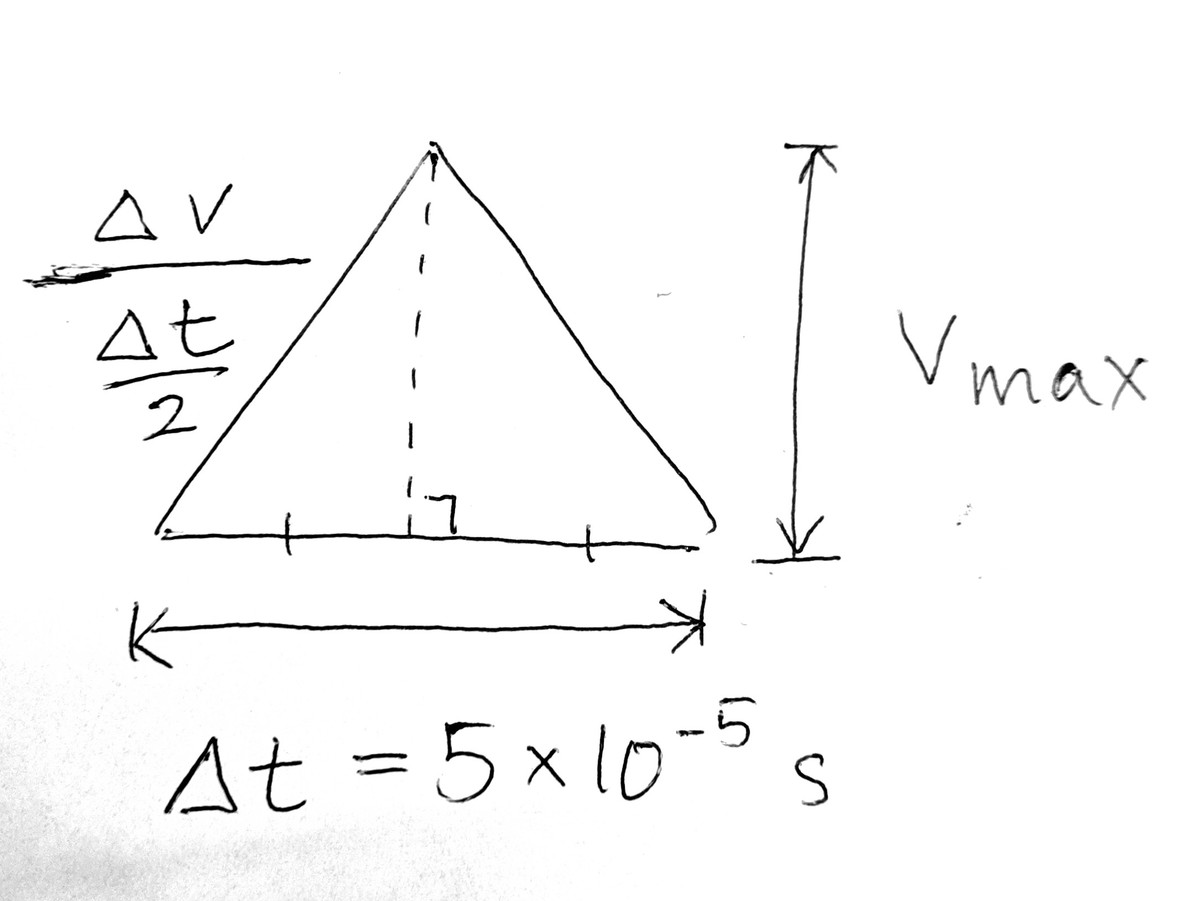 Δv
Δt
2
Vmax
Δt = 5 × 10⁻⁵ s